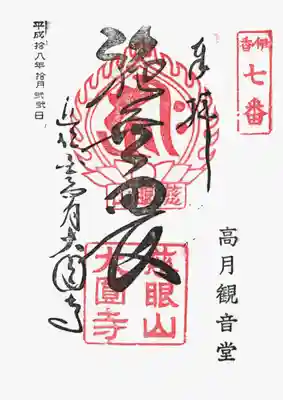 伊香
七番
奉拝
高月観音堂
施無畏
慈眼山
大圓寺
近江高月大圓寺
平成拾八年拾月弐弐日